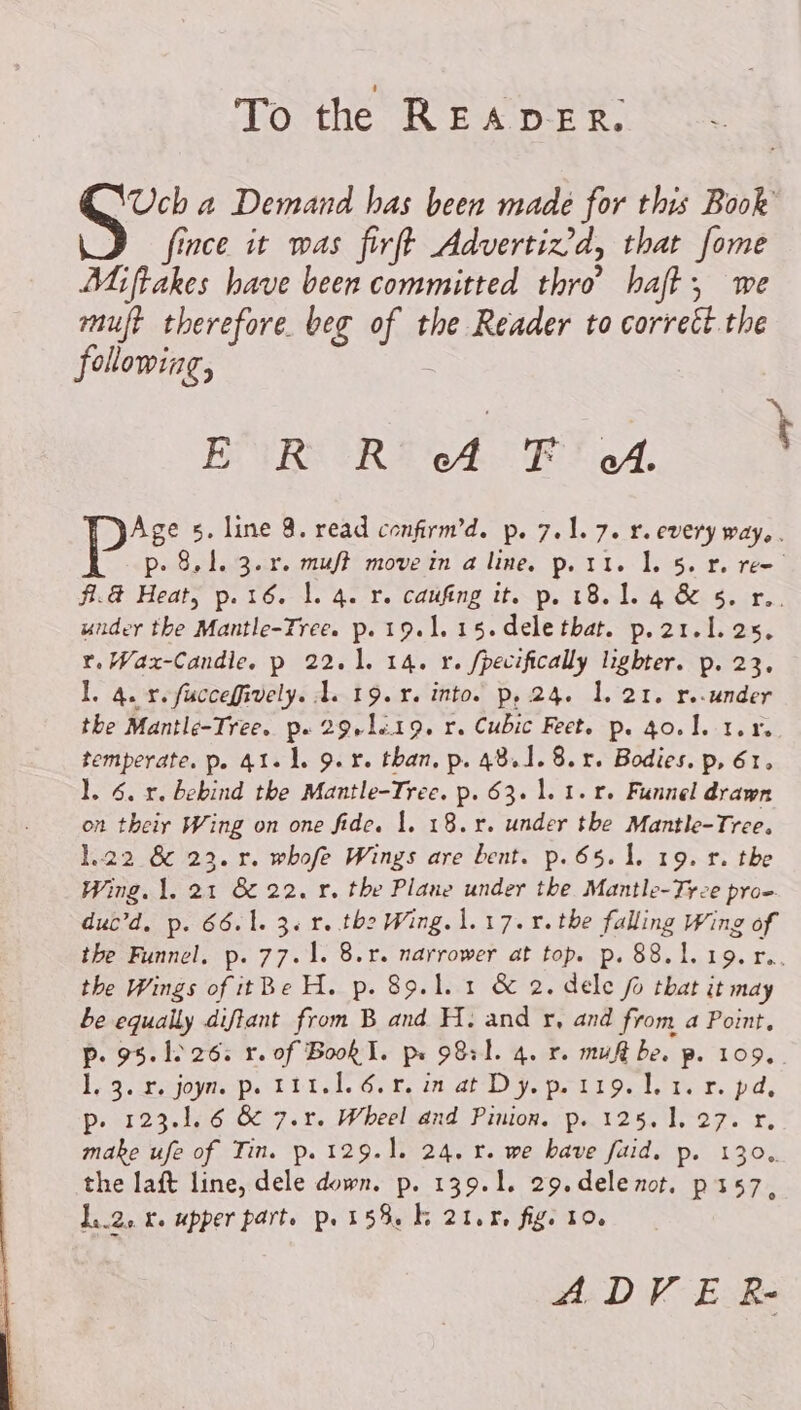 To the READER.
SUch a Demand has been made for this Book
ſince it was firſt Advertiz'd, that ſome
Miſtakes have been committed thro' haſt; we
muſt therefore beg of the Reader to correct the
following,
ERRATA.
PAge 5. line 8. read confirm'd. p. 7. l. 7. r. every way.
p. 8. l. 3. r. muſt move in a line. p. 11. l. 5. r. re-
fl.& Heat, p. 16. l. 4. r. cauſing it. p. 18. l. 4 & 5. r.
under the Mantle-Tree. p. 19. l. 15. dele that. p. 21. l. 25.
r. Wax-Candle. p 22. l. 14. r. ſpecifically lighter. p. 23.
l. 4. r. ſucceſſively. l. 19. r. into. p. 24. l. 21. r. under
the Mantle-Tree. p. 29. l. 19. r. Cubic Feet. p. 40. l. 1. r.
temperate. p. 41. l. 9. r. than. p. 48. l. 8. r. Bodies. p. 61.
l. 6. r. behind the Mantle-Tree. p. 63. l. 1. r. Funnel drawn
on their Wing on one ſide. l. 18. r. under the Mantle-Tree.
l. 22 & 23. r. whoſe Wings are bent. p. 65. l. 19. r. the
Wing. l. 21 & 22. r. the Plane under the Mantle-Tree pro-
duc'd. p. 66. l. 3. r. the Wing. l. 17. r. the falling Wing of
the Funnel. p. 77. l. 8. r. narrower at top. p. 88. l. 19. r.
the Wings of it Be H. p. 89. l. 1 & 2. dele ſo that it may
be equally diſtant from B and H: and r, and from a Point.
p. 95. l. 26. r. of Book I. p. 98. l. 4. r. muſt be. p. 109.
l. 3. r. joyn. p. 111. l. 6. r. in at D y. p. 119. l. 1. r. pd,
p. 123. l. 6 & 7. r. Wheel and Pinion. p. 125. l. 27. r.
make uſe of Tin. p. 129. l. 24. r. we have ſaid. p. 130.
the laſt line, dele down. p. 139. l. 29. dele not. p 157.
l. 2. r. upper part. p. 158. l. 21. r. fig. 10.
ADVER-